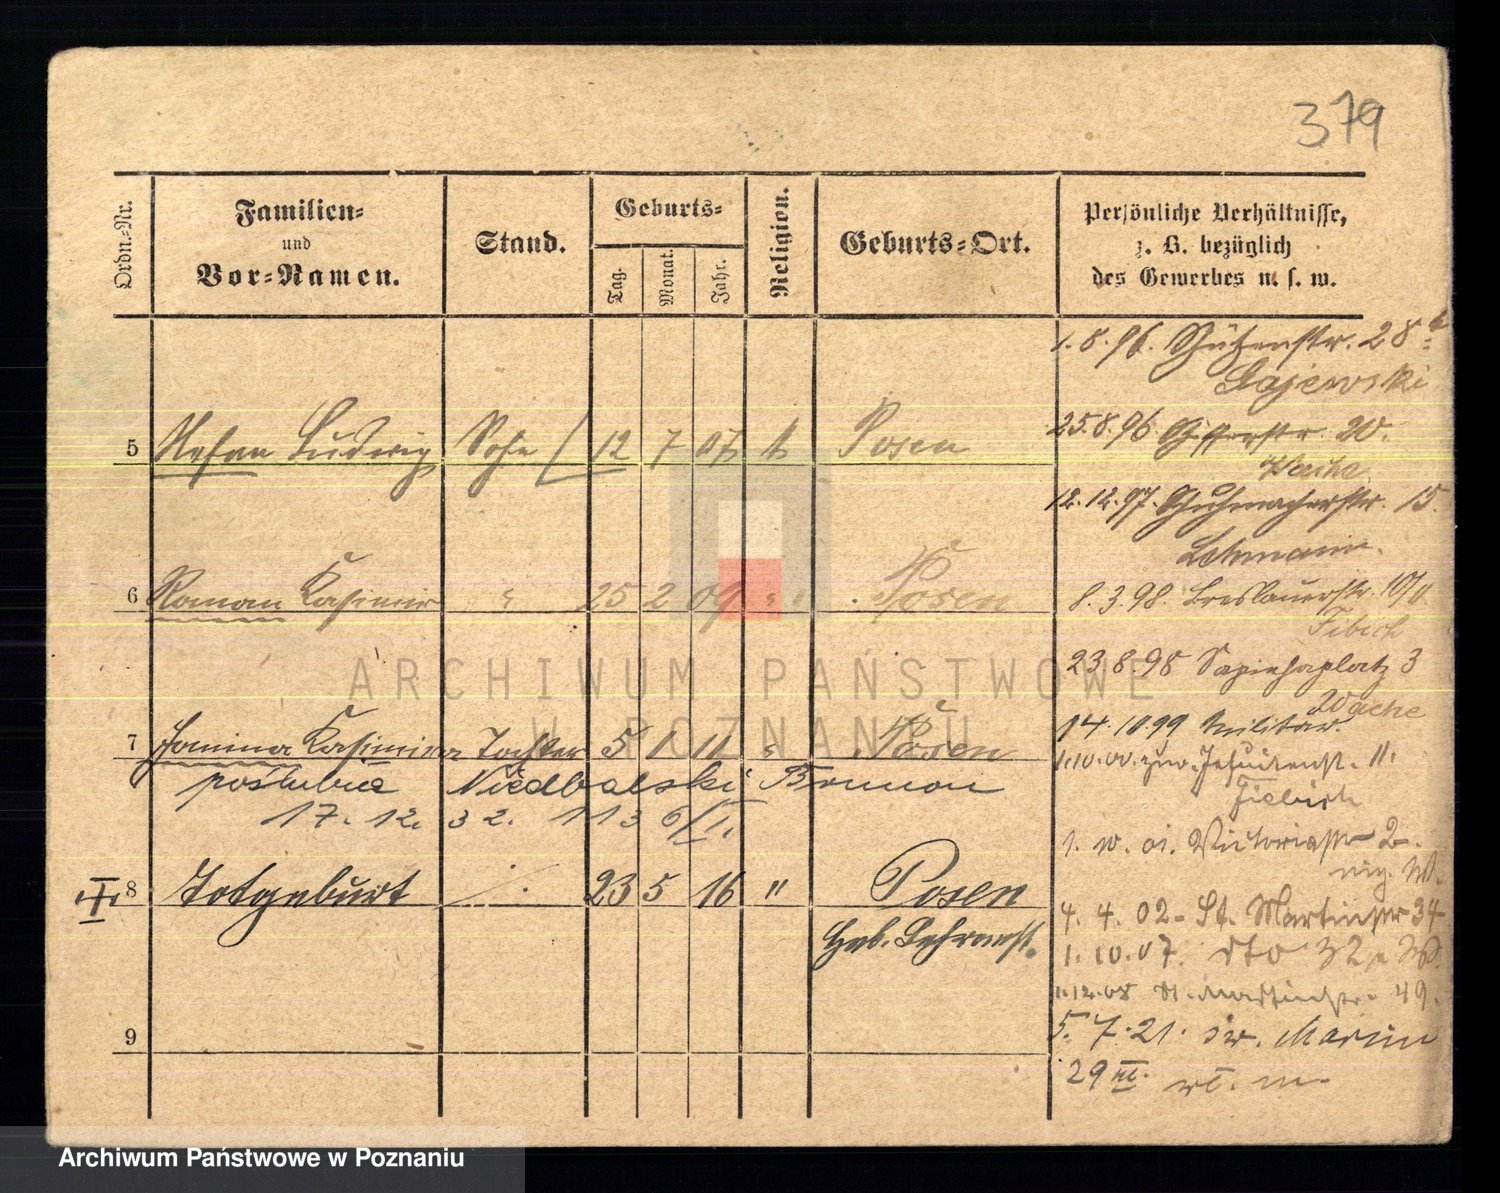 379
Ordn.-Nr.
Familien-
und
Vor-Namen.
Stand.
Geburts-
Tag.
Monat.
Jahr.
Religion.
Geburts-Ort.
Persönliche Verhältnisse,
z. B. bezüglich
des Gewerbes u. s. w.
5 Stefan Ludwig Sohn 12 7 07 k Posen
6 Roman Kasimir " 25 2 09 " Posen
7 Janina Kasimira Tochter 5 1 11 " Posen
poślubia Niedbalski Brunon
17. 12. 32. 113 6/II.
8 Totgeburt 23 5 16 " Posen
Geb. Lehranst.
9
1.8.96. Schützenstr. 28
Gajewski
25.8.96 20.
Wache
12.12.97. Schuhmacherstr. 15.
Lehmann.
8.3.98. Breslauerstr. 10/11
Fibich
23.8.98 Sapiehaplatz 3
Wache
14.10.99 Militär.
1.10.00. zur. Jesuitenst. 11.
Fiebich
1. 10. 01. Victoriastr 2
4. 4. 02 - St. Martinstr 34
1. 10. 07. dto 32
1.12.08 St. Martinstr. 49.
5. 7. 21. św. Marcin
29 III.
ARCHIWUM PAŃSTWOWE
W POZNANIU
Archiwum Państwowe w Poznaniu